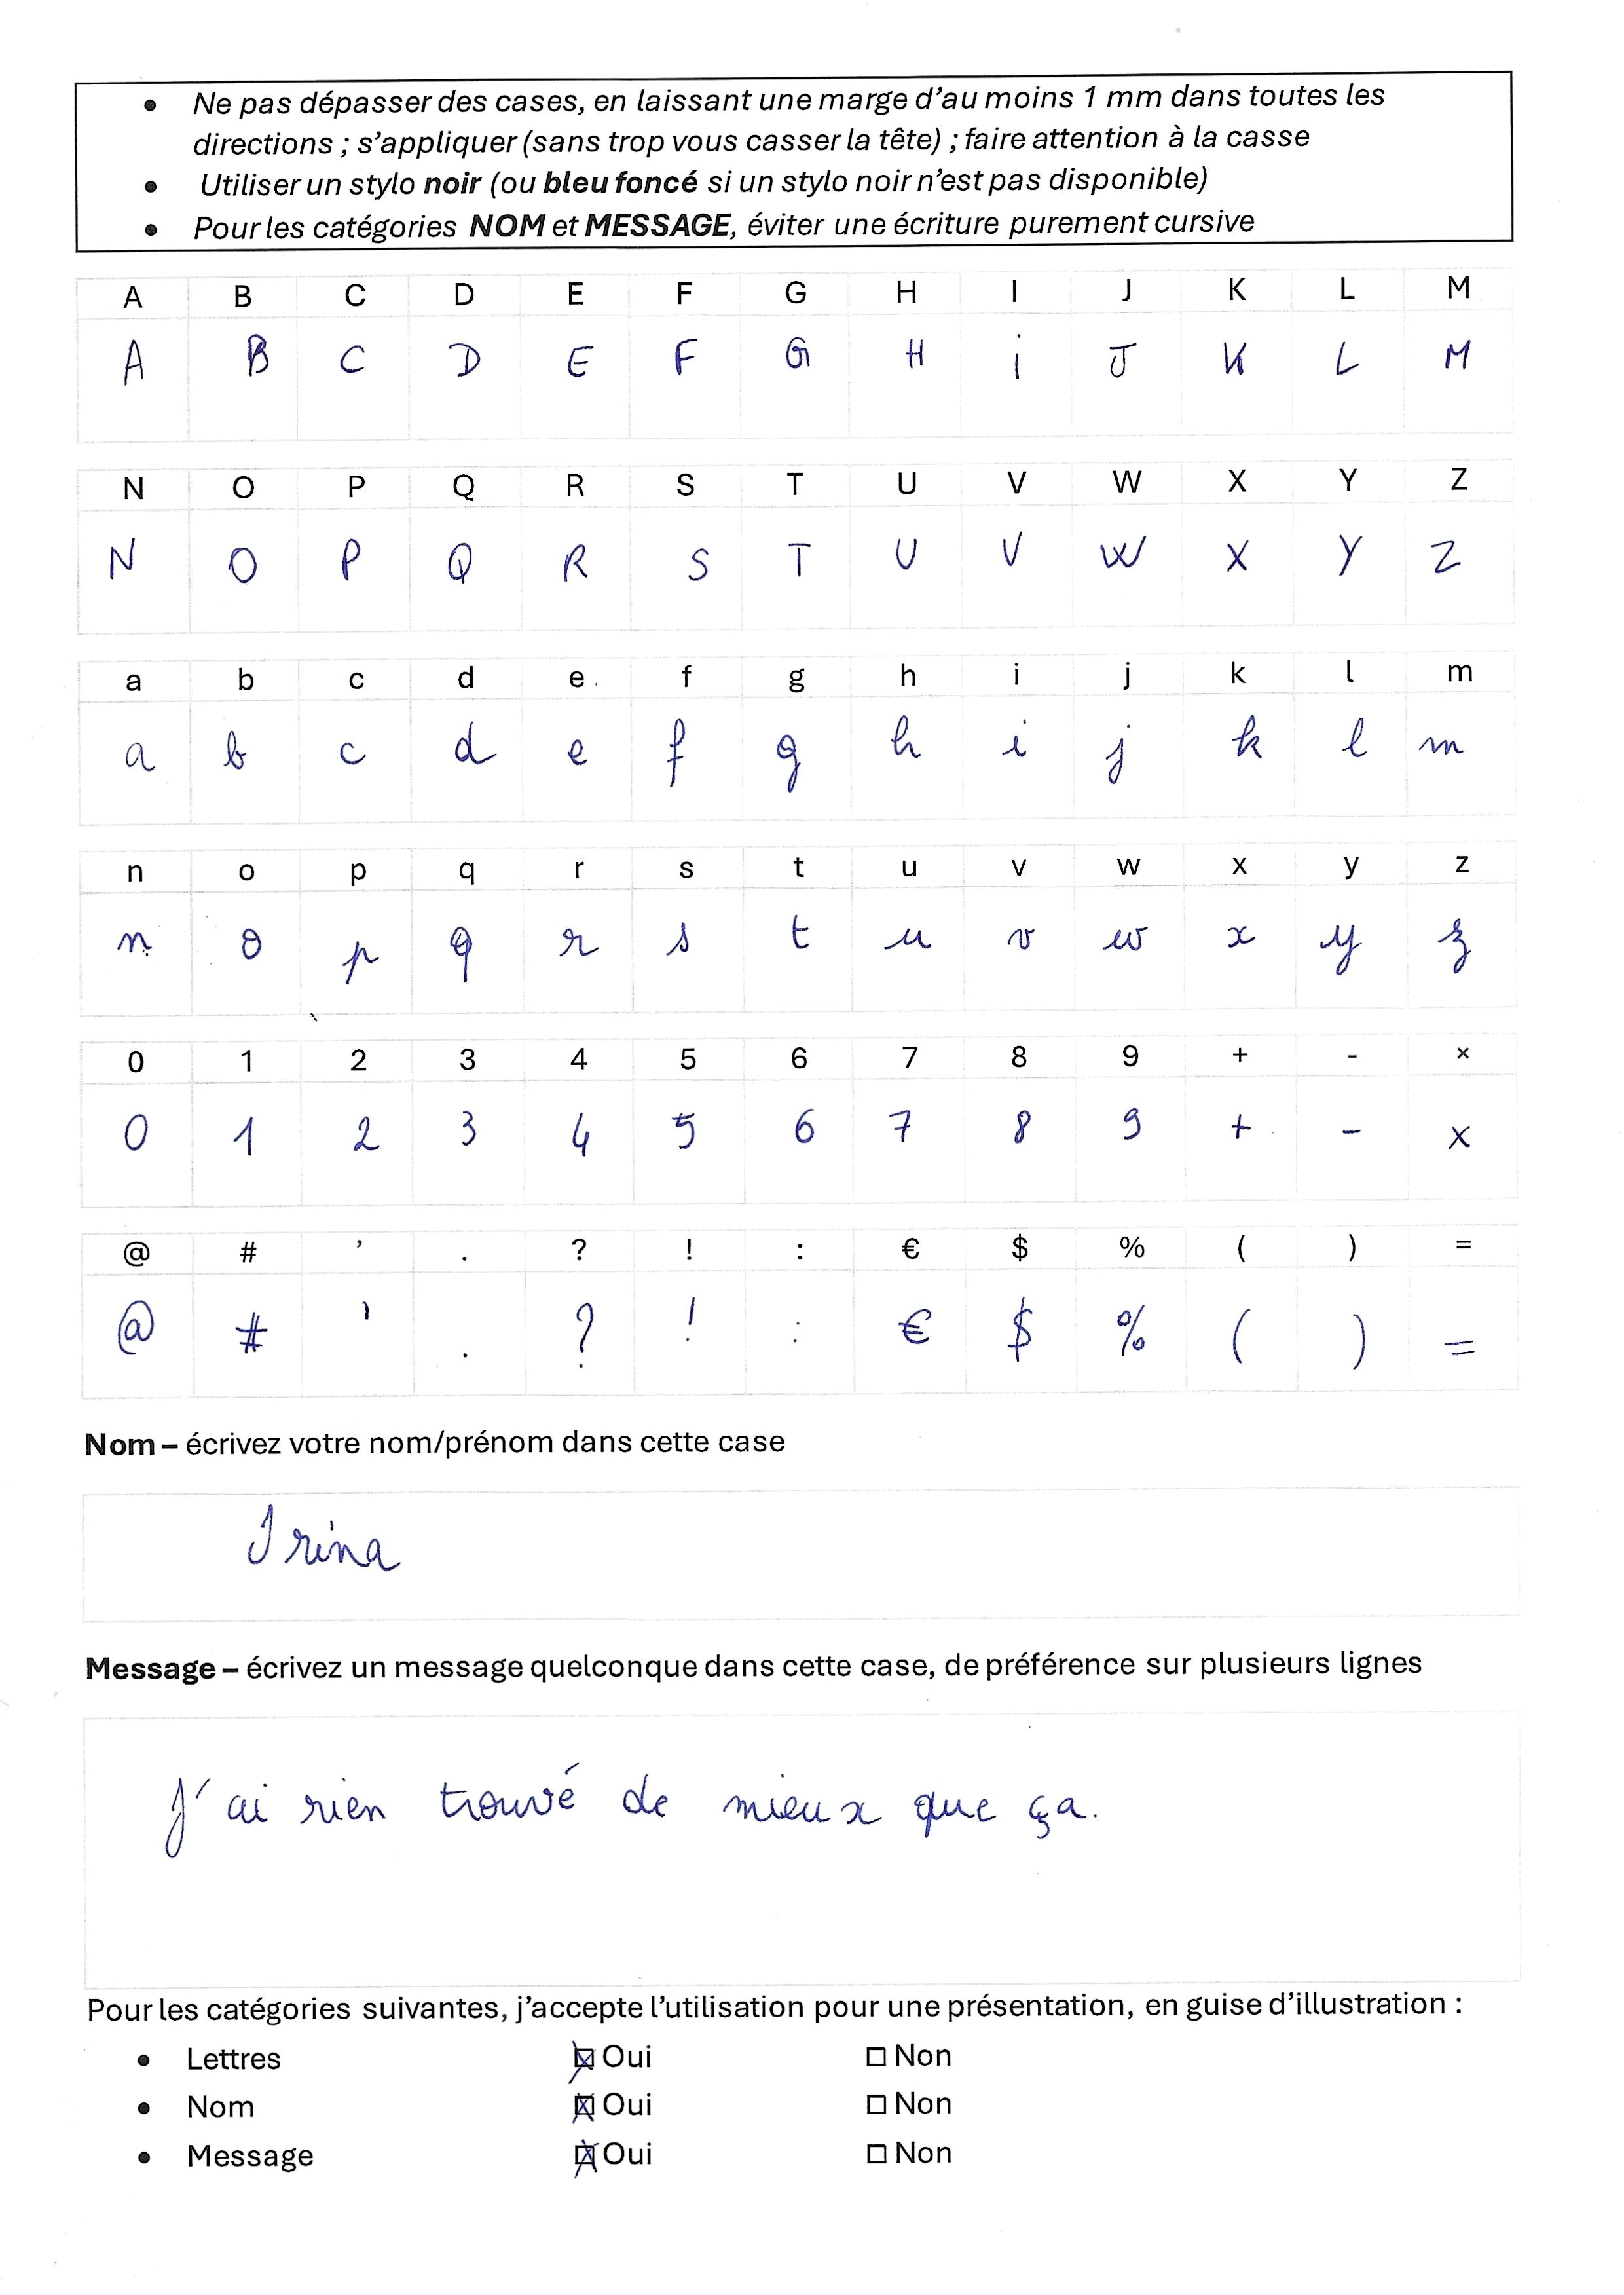 • Ne pas dépasser des cases, en laissant une marge d'au moins 1 mm dans toutes les
directions ; s'appliquer (sans trop vous casser la tête) ; faire attention à la casse
• Utiliser un stylo noir (ou bleu foncé si un stylo noir n'est pas disponible)
• Pour les catégories NOM et MESSAGE, éviter une écriture purement cursive
A B C D E F G H I J K L M
A B C D E F G H i J K L M
N O P Q R S T U V W X Y Z
N O P Q R S T U V W X Y Z
a b c d e f g h i j k l m
a b c d e f g h i j k l m
n o p q r s t u v w x y z
n o p q r s t u v w x y z
0 1 2 3 4 5 6 7 8 9 + - ×
0 1 2 3 4 5 6 7 8 9 + - ×
@ # ’ . ? ! : € $ % ( ) =
@ # ' . ? ! : € $ % ( ) =
Nom – écrivez votre nom/prénom dans cette case
Irina
Message – écrivez un message quelconque dans cette case, de préférence sur plusieurs lignes
J'ai rien trouvé de mieux que ça.
Pour les catégories suivantes, j'accepte l'utilisation pour une présentation, en guise d'illustration :
• Lettres ☒ Oui ☐ Non
• Nom ☒ Oui ☐ Non
• Message ☒ Oui ☐ Non